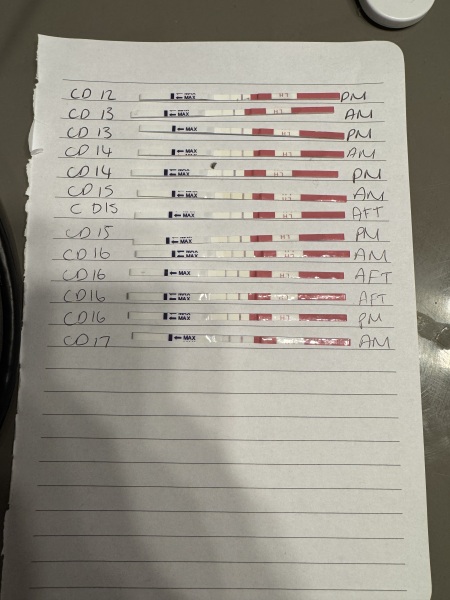 CD 12 ← MAX LH PM
CD 13 ← MAX LH AM
CD 13 ← MAX LH PM
CD 14 ← MAX LH AM
CD 14 ← MAX LH PM
CD 15 ← MAX LH AM
CD15 ← MAX LH AFT
CD 15 ← MAX LH PM
CD 16 ← MAX LH AM
CD16 ← MAX LH AFT
CD16 ← MAX LH AFT
CD16 ← MAX LH PM
CD 17 ← MAX AM